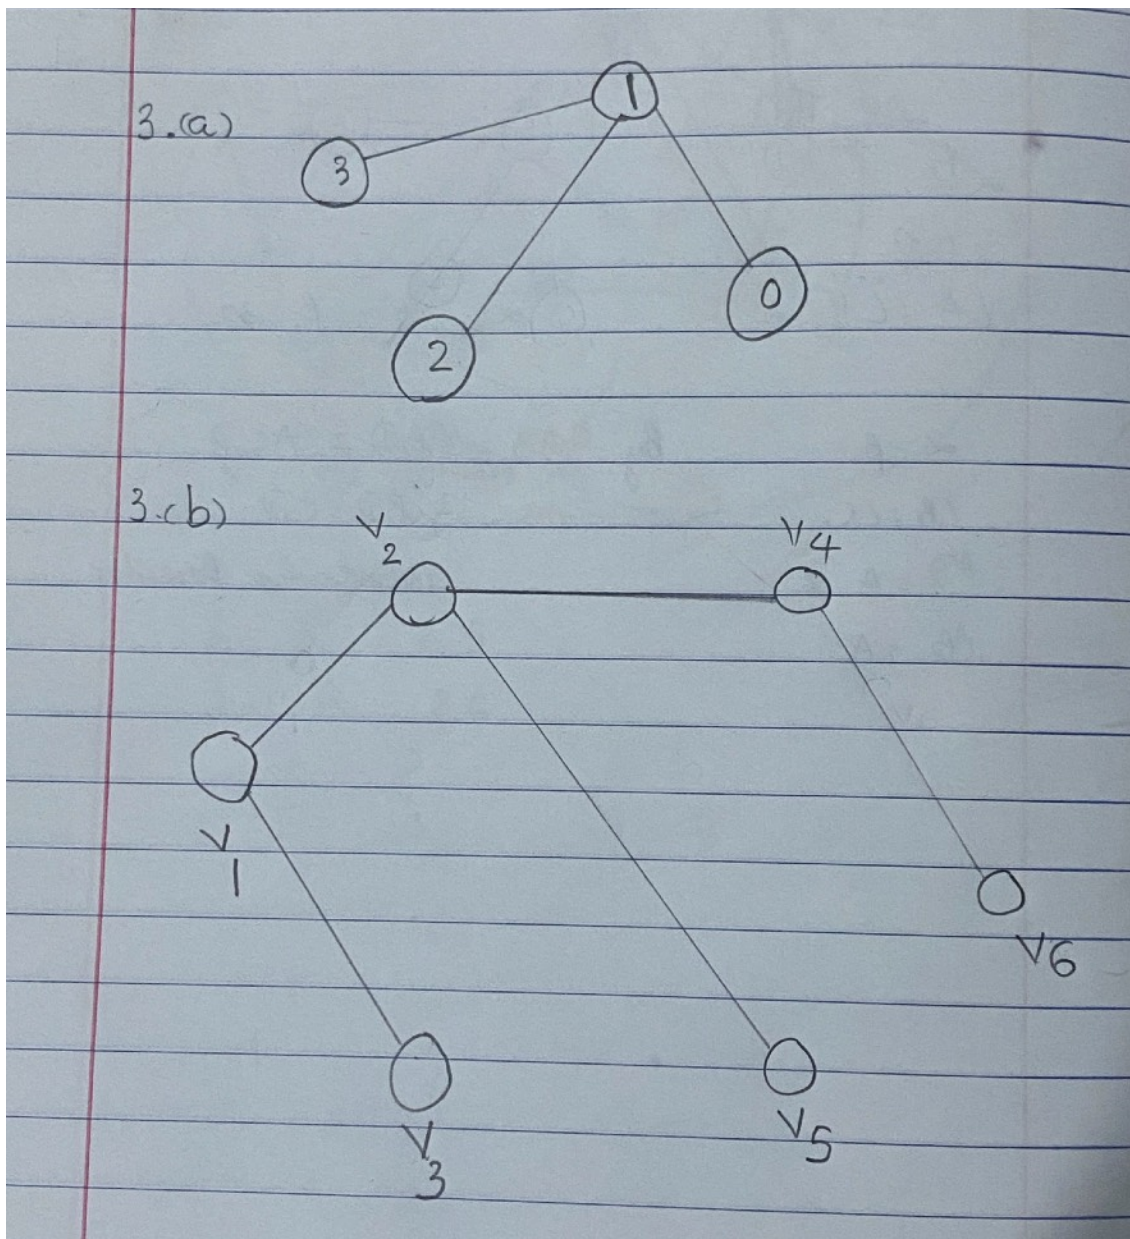 3.(a)
1
3
0
2
3.(b)
V2
V4
V1
V6
V3
V5